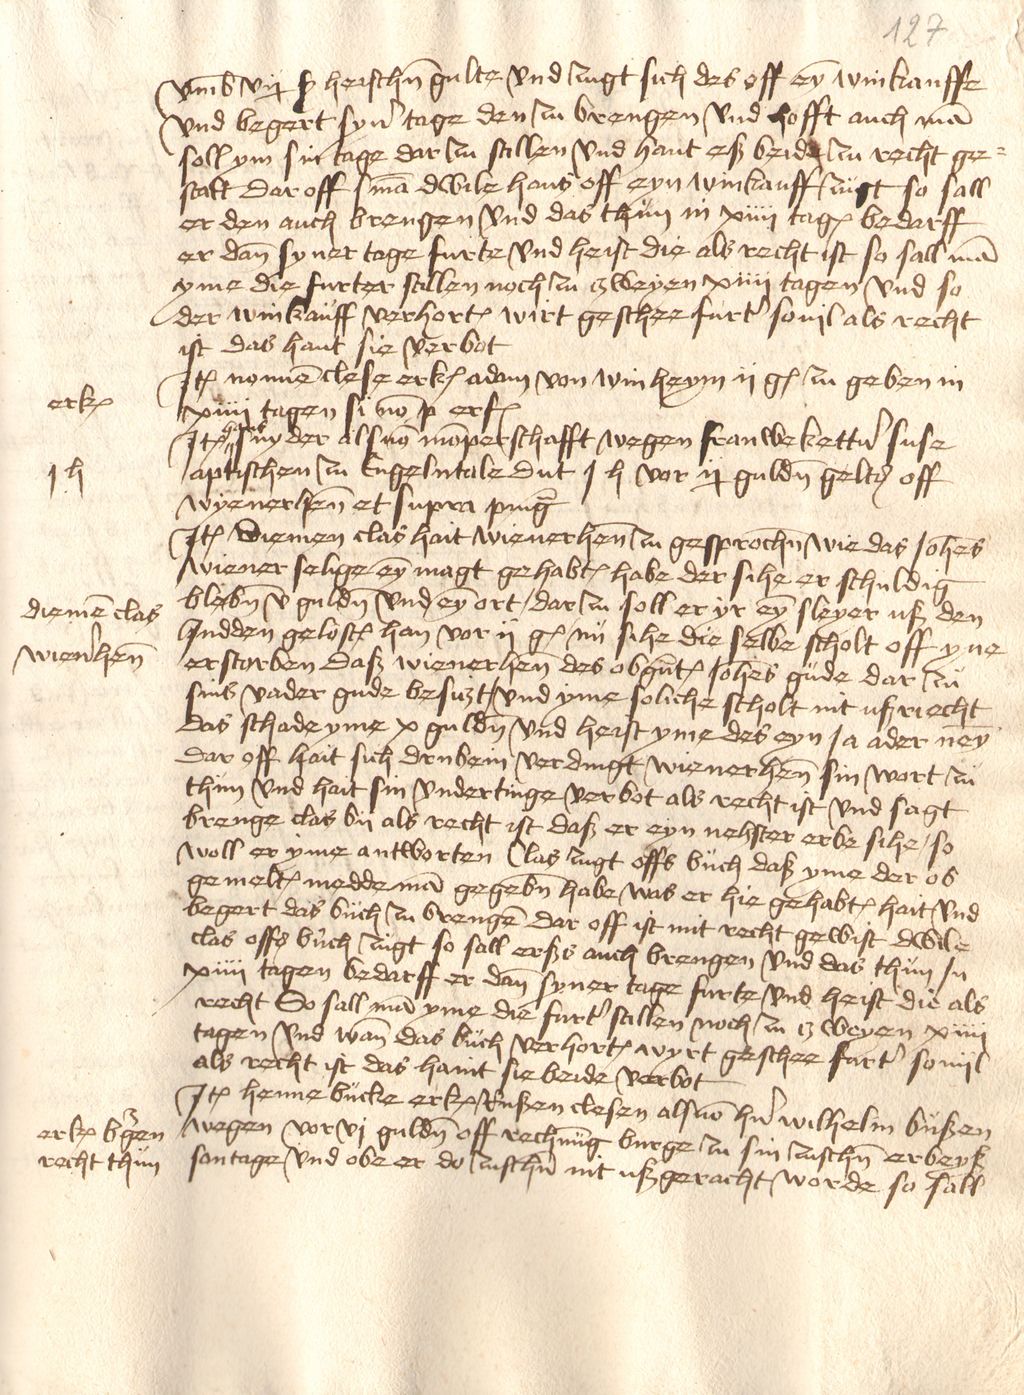 127
vmb vij ß heischen gulte vnd zugt sich des off ey winkauffe
vnd begert syner tage den zu brengen vnd hofft auch ma
soll ym sin tage dar zu stillen vnd hant eß beide zu recht ge=
stalt dar off s ma dwile hans off eyn winkauff zugt so sall
er den auch brengen vnd das thun in xiiii tagen bedarff
er dan syner tage furte vnd heist die als recht ist so sall ma
yme die furter stillen noch zu zweyen xiiii tagen vnd so
der winkauff verhort wirt geschee furter souil als recht
ist das hant sie verbot
Item nonnen clese erk adam von winheym ii g zu geben in
erk
xiiii tagen si no p erf
Item snyder als von momperschafft wegen frauwe suse
aptischen zu Engelntale dut I h vor guldn gelt off
I h
wyenerhen et supra ping
Item diemen clas hait wienerhen zu gesprochn wie das Iohes
wiener selige ey magt gehabt habe der sihe er schuldig
blebn v guldn vnd ey ort dar zu soll er yr ey sleyer uß den
diemen clas
Iudden gelost han vor ii g nu sihe die selbe scholt off yne
wienerhen
erstorben daß wienerhen des obgnt Iohes gude dar zu
sins vader gude besitzt vnd yme soliche scholt nit ußriecht
das schade yme x guldn vnd heist yme des eyn Ia ader ney
dar off hait sich drubein verdingt wienerhen sin wort zu
thun vnd hait sin vndertinge verbot als recht ist vnd sagt
brenge clas bii als recht ist daß er eyn nehster erbe sihe so
woll er yme antworten Clas zugt offs buch daß yme der ob
gemelt meddema gegebn habe was er hie gehabt hait vnd
begert das buch zu brengen dar off ist mit recht gewist dwile
clas offs buch zugt so sall erßs auch brengen vnd das thun In
xiiii tagen bedarff er dan syner tage furte vnd heist die als
recht So sall ma yme die furter stillen noch zu zweyen xiiii
tagen vnd wan das buch verhort wyrt geschee furter souil
als recht ist das haint sie beide verbot
Item henne bucke erk Rußen clesen als von her wilhelm bußen
wegen vor vi guldn off rechnung burge zu sin zuschn erbeyß
erk bgen
recht thun
sontage vnd obe er do zuschn nit ußgeracht worde so sall